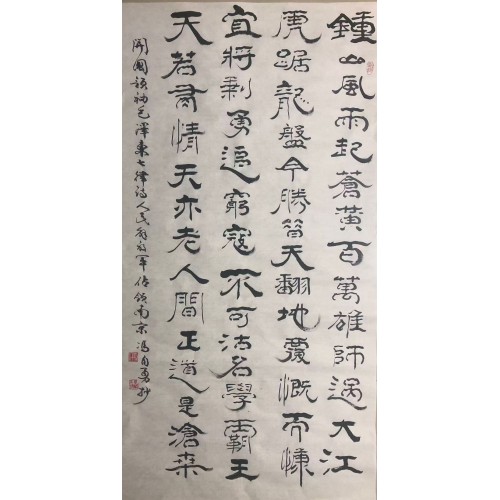 鍾山風雨起蒼黃百萬雄師過大江
虎踞龍盤今勝昔天翻地覆慨而慷
宜將剩勇追窮寇不可沽名學霸王
天若有情天亦老人間正道是滄桑
開國領袖毛澤東七律詩人民解放軍佔領南京 馮自勇抄